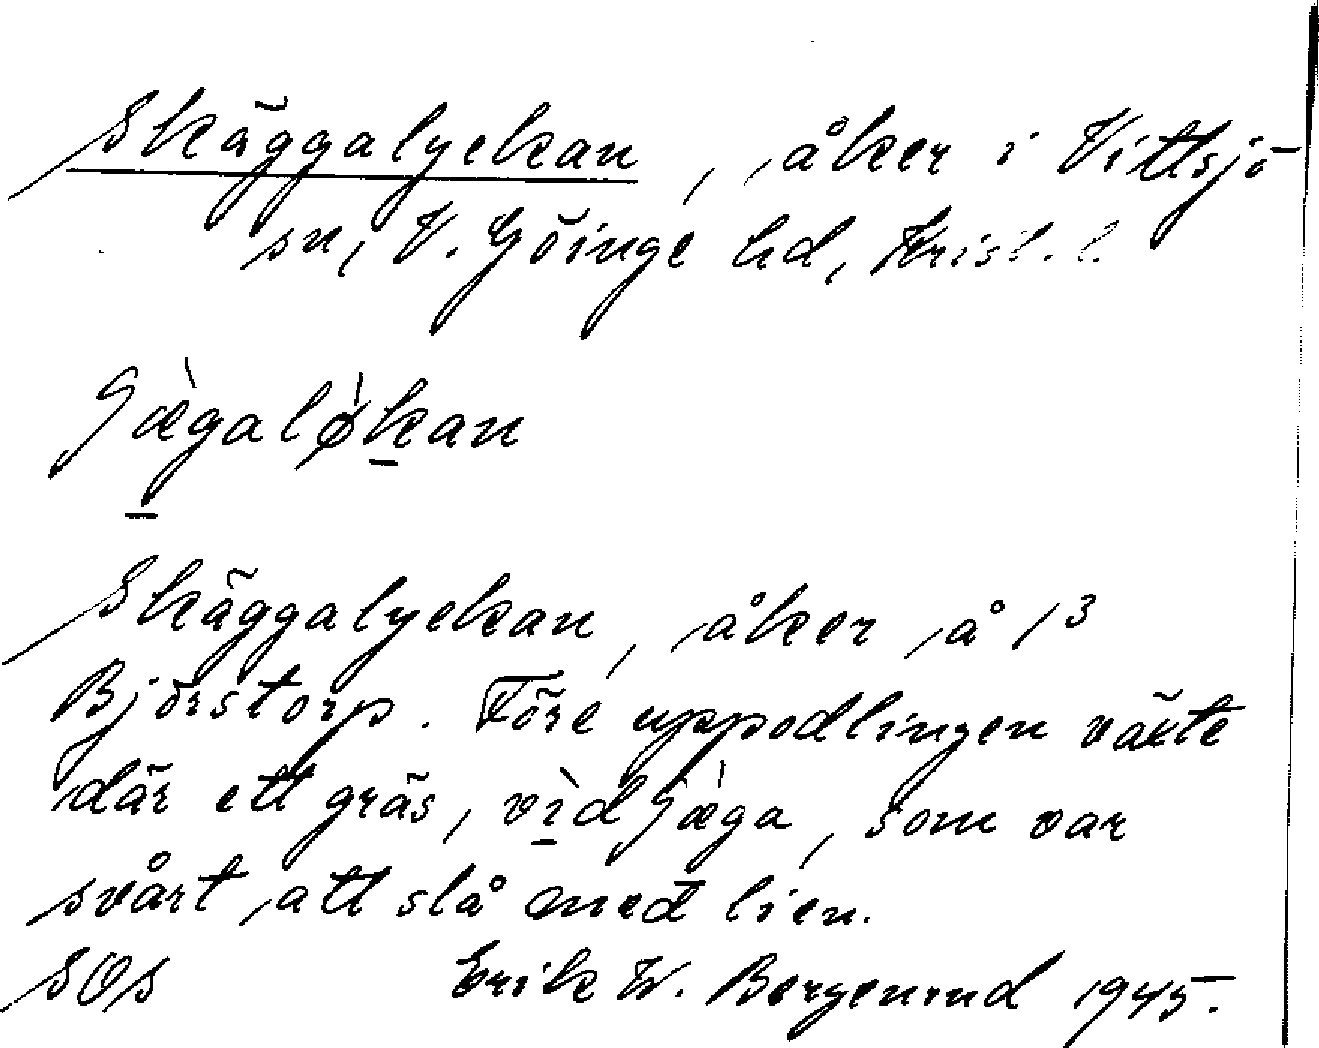 Skäggalyckan, åker i Vittsjö
sn, V. Göinge hd, Krist. l.
ʃæ̀galø̀kan
Skäggalyckan, åker å 1³
Björstorp. Före uppodlingen växte
där ett gräs, vìdʃæ̀ga, som var
svårt att slå med lien.
SOS Erik W. Bergenrud 1945.